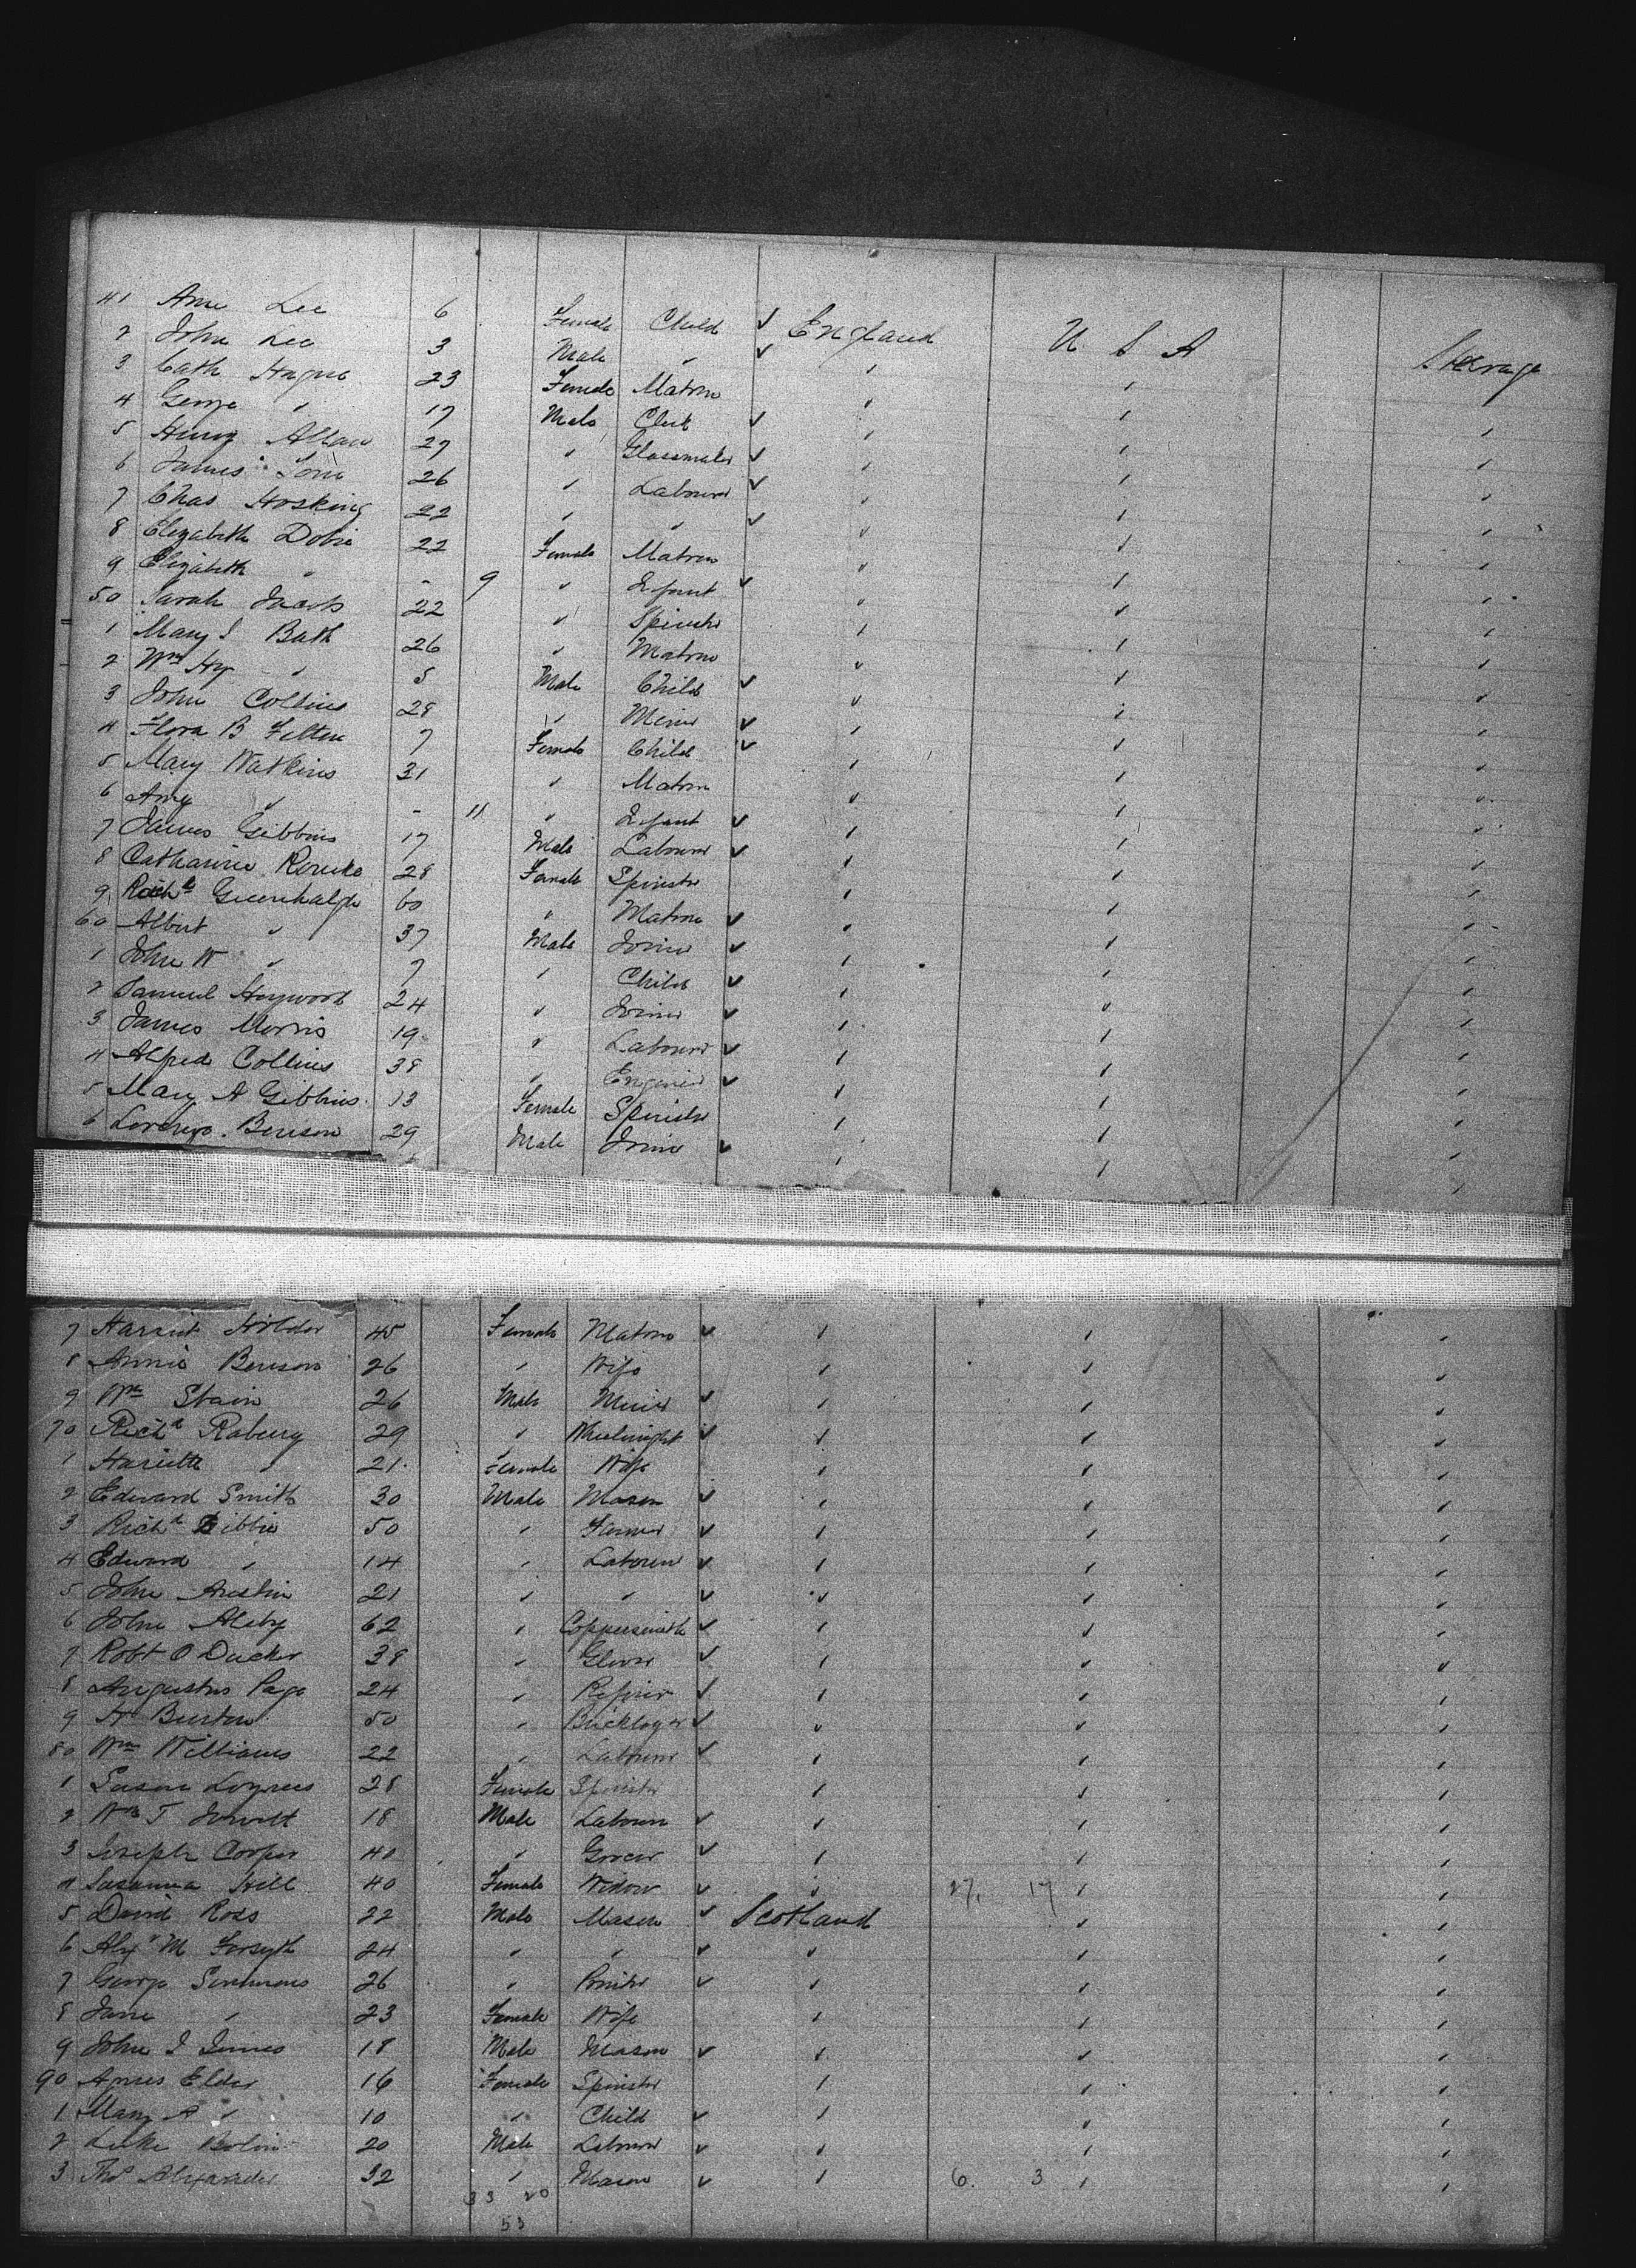 41 Ann Lee 6 Female Child ✓ England U S A Steerage
2 John Lee 3 Male " ✓ " " "
3 Cath Hague 23 Female Matron " " "
4 George " 17 Male Clerk ✓ " " "
5 Henry Allan 27 " Glassmaker ✓ " " "
6 James 26 " Labourer ✓ " " "
7 Chas Hosking 22 " " ✓ " " "
8 Elizabeth Dobie 22 Female Matron " " "
9 Elizabeth " - 9 " Infant ✓ " " "
50 Sarah Jacobs 22 " Spinster " " "
1 Mary J Bath 26 " Matron " " "
2 Wm Hy " 5 Male Child ✓ " " "
3 John Collins 28 " Miner ✓ " " "
4 Flora B Felten 7 Female Child ✓ " " "
5 Mary Watkins 31 " Matron " " "
6 Amy " - 11 " Infant ✓ " " "
7 James Gibbins 17 Male Labourer ✓ " " "
8 Catharine Rourke 28 Female Spinster " " "
9 Richd Greenhalgh 60 " Matron ✓ " " "
60 Albert " 37 Male Joiner ✓ " " "
1 John W " 7 " Child ✓ " " "
2 Samuel Heywood 24 " Joiner ✓ " " "
3 James Morris 19 " Labourer ✓ " " "
4 Alfred Collins 38 " Engineer ✓ " " "
5 Mary A Gibbins 13 Female Spinster " " "
6 Lorenzo Benson 29 Male Joiner ✓ " " "
7 Harriet Holder 45 Female Matron ✓ " " "
8 Annie Benson 26 " Wife " " "
9 Wm Stain 26 Male Miner ✓ " " "
70 Richd Rabury 29 " Wheelwright ✓ " " "
1 Hariette " 21 Female Wife " " "
2 Edward Smith 30 Male Mason ✓ " " "
3 Richd 50 " Farmer ✓ " " "
4 Edward " 14 " Labourer ✓ " " "
5 John Austin 21 " " ✓ " " "
6 John 62 " Coppersmith ✓ " " "
7 Robt O Ducker 38 " Glover ✓ " " "
8 Augustus Page 24 " Refiner ✓ " " "
9 H Burton 50 " Bricklayer ✓ " " "
80 Wm Williams 22 " Labourer ✓ " " "
1 28 Female Spinster " " "
2 Wm T Jowett 18 Male Labourer ✓ " " "
3 Joseph Cooper 40 " Grocer ✓ " " "
4 Susanna Hill 40 Female Widow ✓ " 27. 17 " "
5 David Ross 22 Male Mason ✓ Scotland " "
6 Alexr M Forsyth 24 " " ✓ " " "
7 George Simmons 26 " Printer ✓ " " "
8 Jane " 23 Female Wife " " "
9 John J Innes 18 Male Mason ✓ " " "
90 Agnes Elder 16 Female Spinster " " "
1 Mary A " 10 " Child ✓ " " "
2 Luke Bolin 20 Male Labourer ✓ " " "
3 Thos Alexander 32 " Mason ✓ " 6. 3 " "
33 20
53